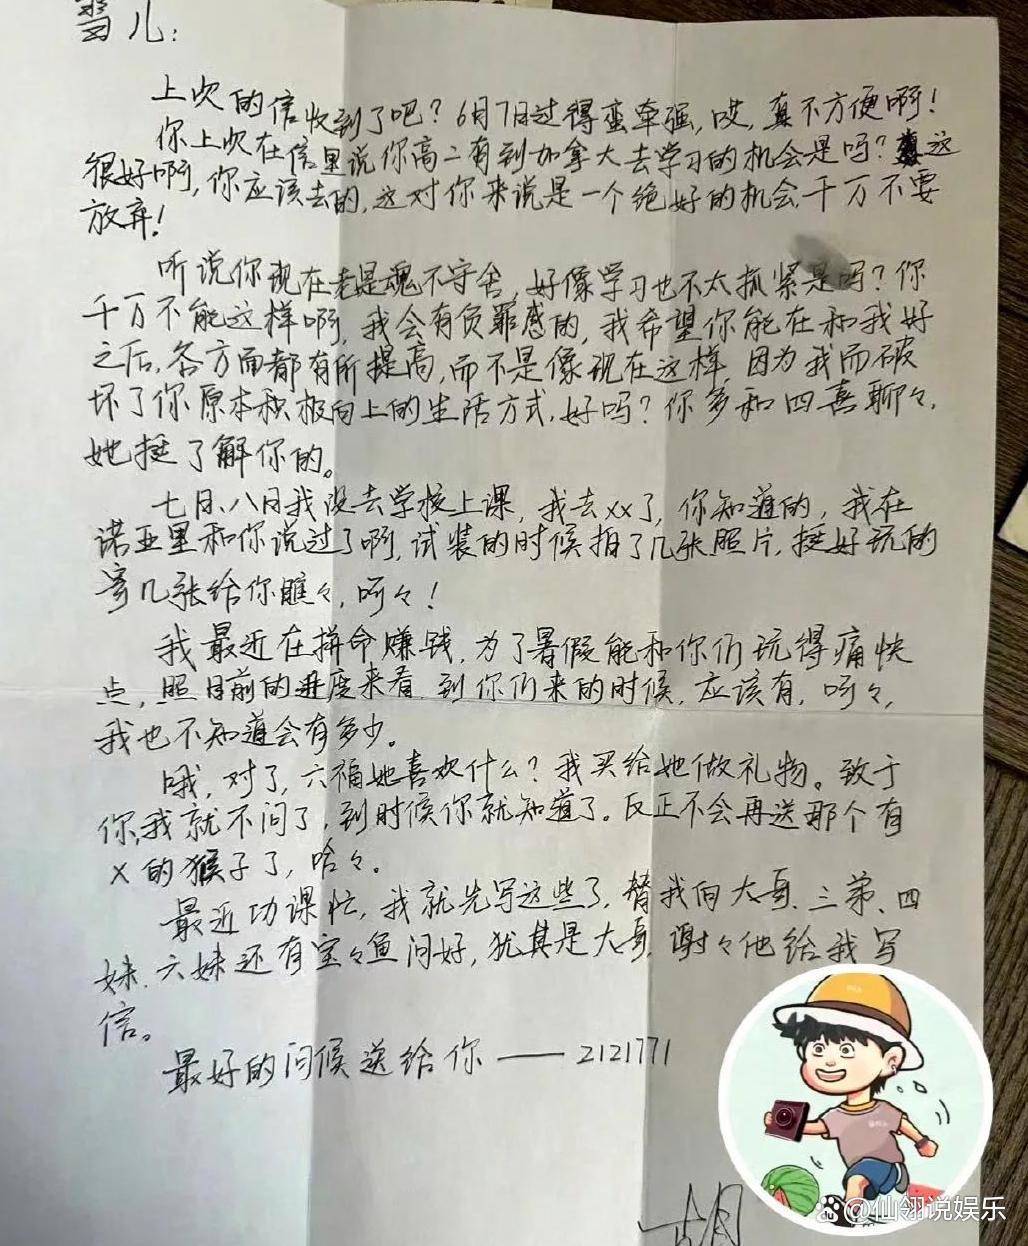 雪儿：
上次的信收到了吧？6月7日过得蛮牵强，哎，真不方便啊！
你上次在信里说你高二有到加拿大去学习的机会是吗？这
很好啊，你应该去的，这对你来说是一个绝好的机会千万不要
放弃！
听说你现在老是魂不守舍，好像学习也不太抓紧是吗？你
千万不能这样啊，我会有负罪感的，我希望你能在和我好
之后，各方面都有所提高，而不是像现在这样，因为我而破
坏了你原本积极向上的生活方式，好吗？你多和四喜聊々，
她挺了解你的。
七月、八月我没去学校上课，我去xx了，你知道的，我在
诺亚里和你说过了啊，试装的时候拍了几张照片，挺好玩的
寄几张给你瞧々，呵々！
我最近在拼命赚钱，为了暑假能和你们玩得痛快
点，照目前的进度来看，到你们来的时候，应该有，呵々，
我也不知道会有多少。
哦，对了，六福她喜欢什么？我买给她做礼物。致于
你，我就不问了，到时候你就知道了。反正不会再送那个有
X的猴子了，哈々。
最近功课忙，我就先写这些了，替我向大哥、三弟、四
妹、六妹还有宝々鱼问好，犹其是大哥，谢々他给我写
信。
最好的问候送给你——2121771
胡
@仙翎说娱乐